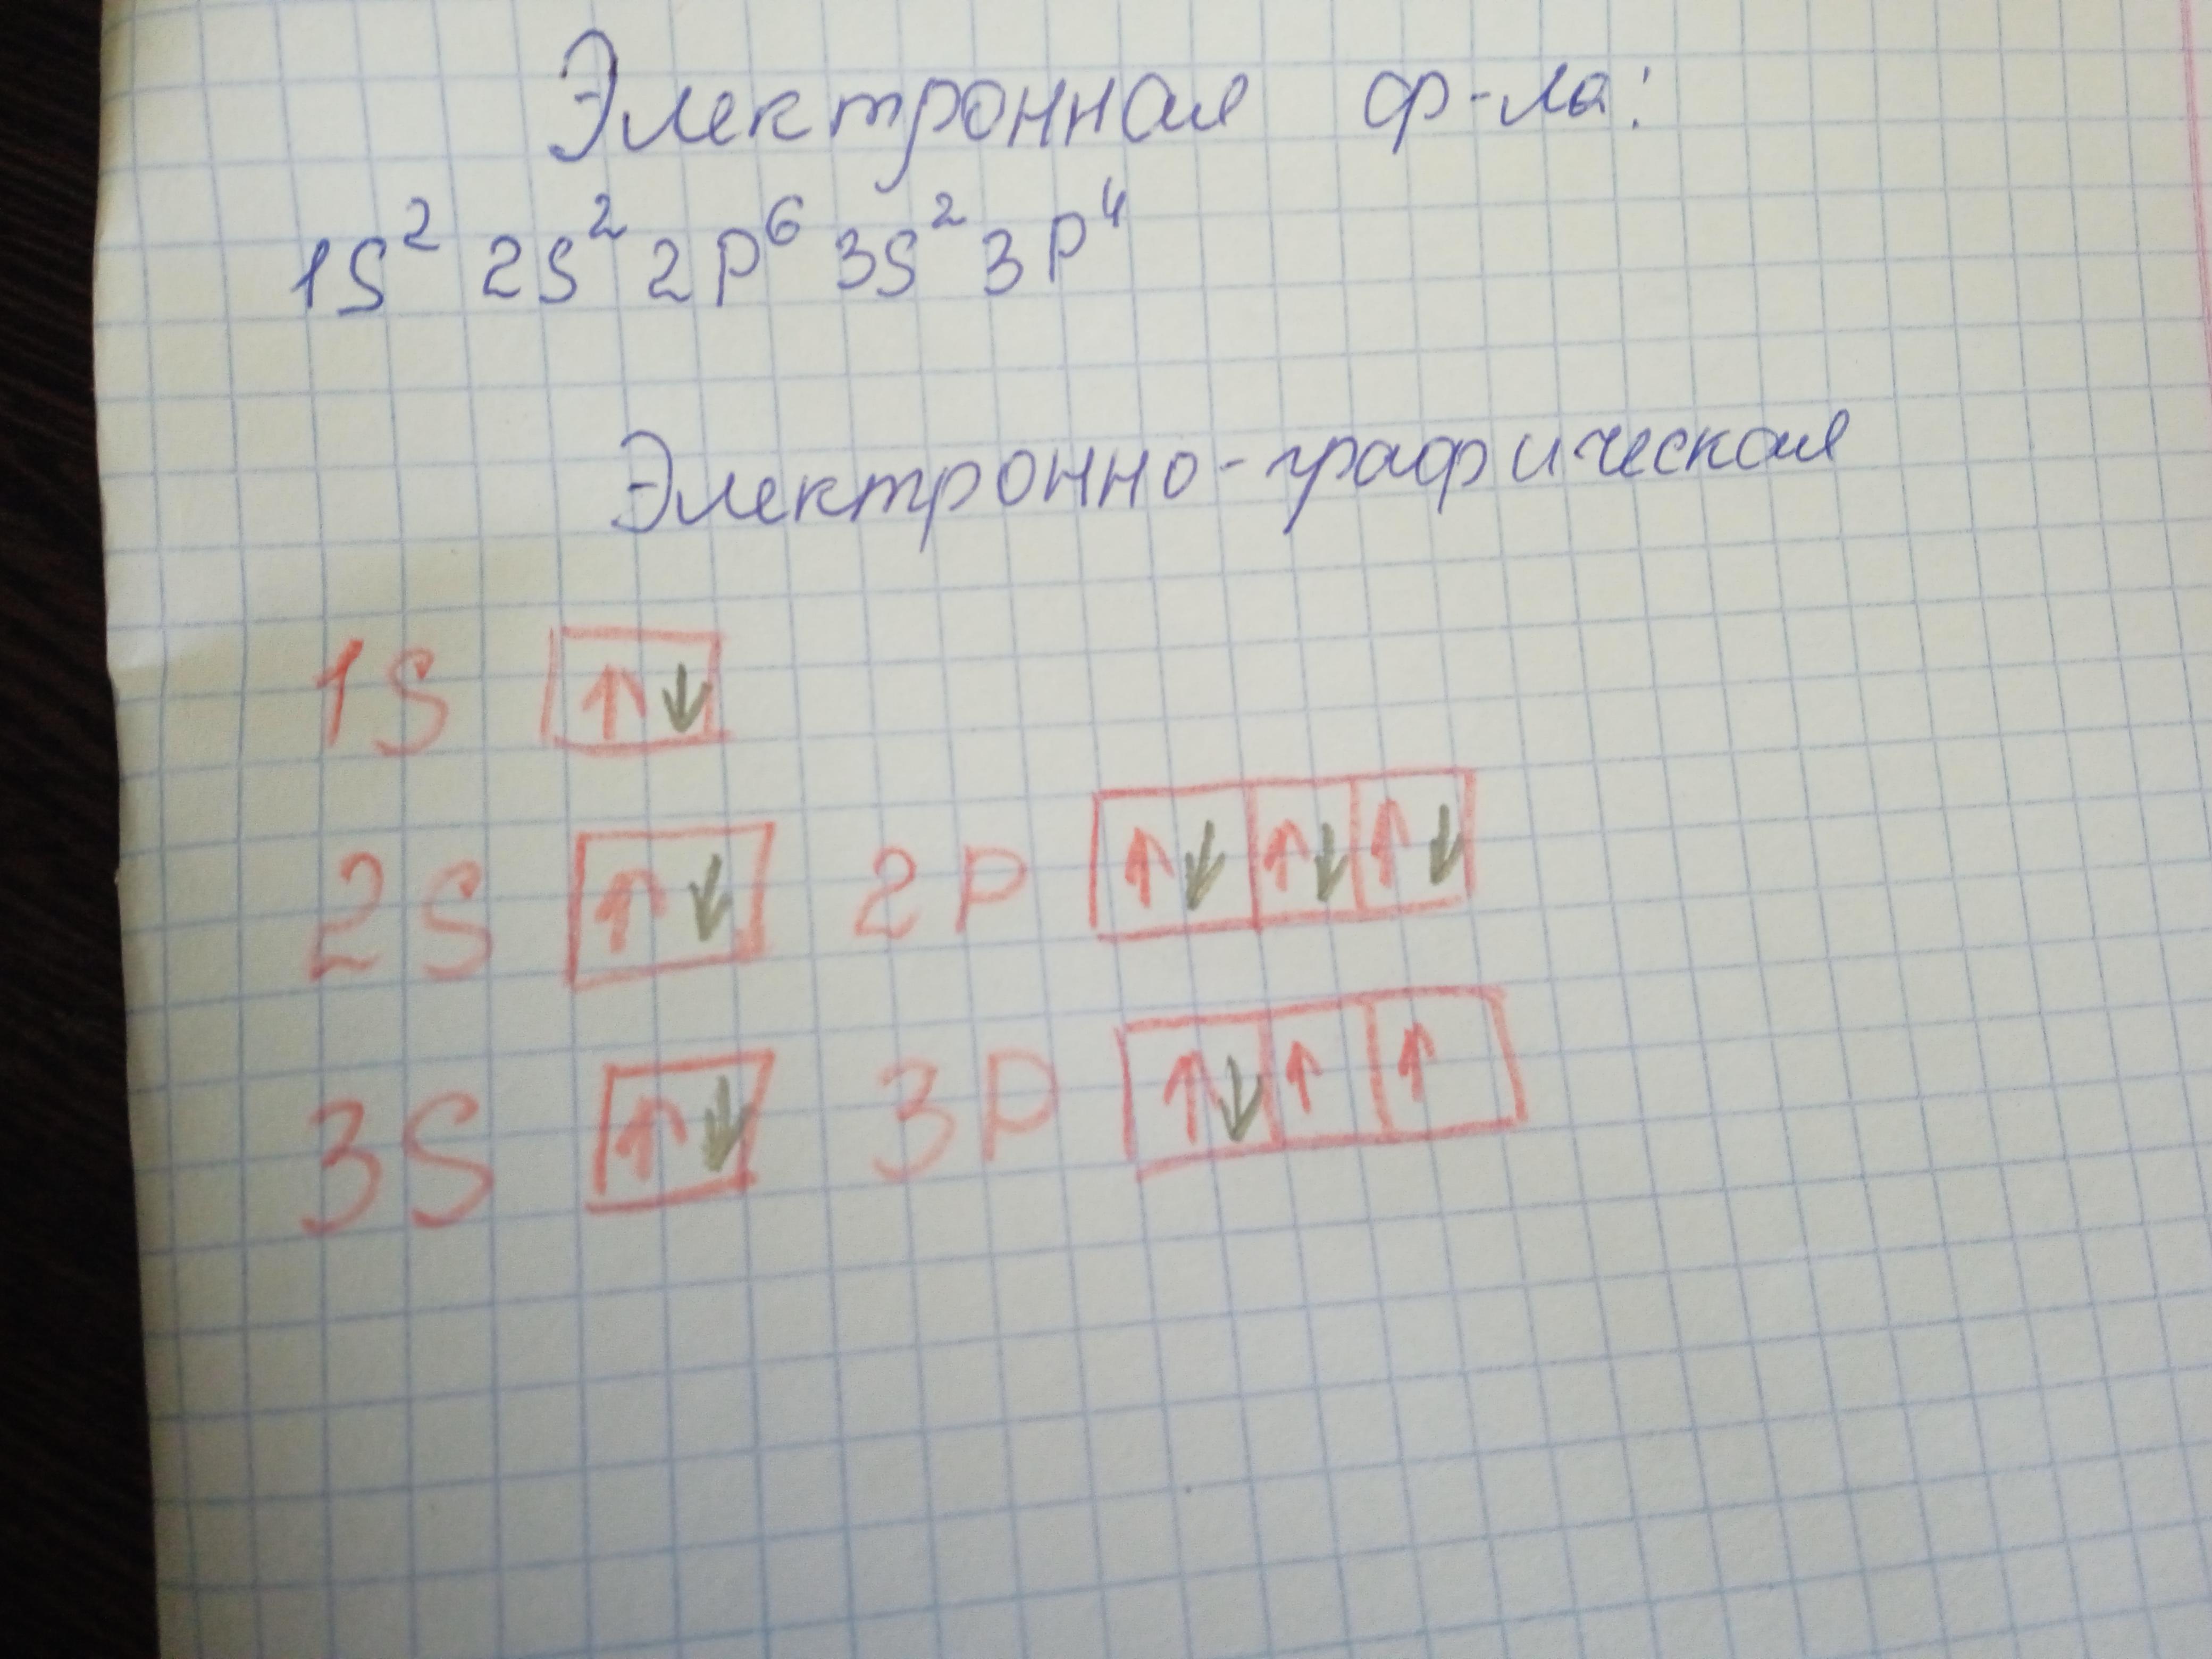 Электронная ф-ла:
1S² 2S² 2P⁶ 3S² 3P⁴
Электронно-графическая
1S ↑↓
2S ↑↓ 2P ↑↓ ↑↓ ↑↓
3S ↑↓ 3P ↑↓ ↑ ↑